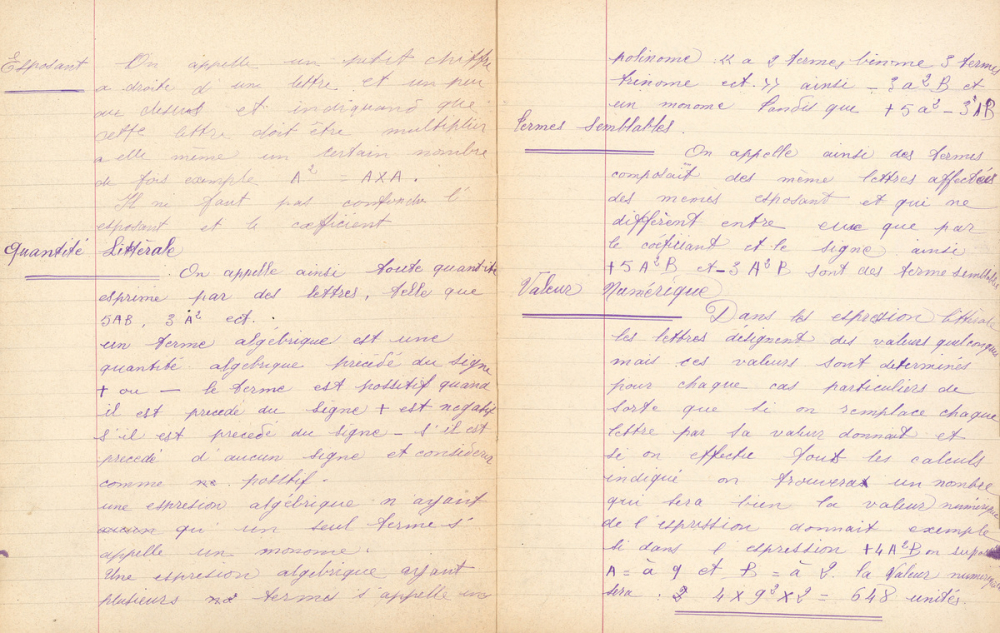 Exposant On appelle un petit chiffre
a droite d'une lettre et un peu
au dessus et indiquand que
cette lettre doit être multiplier
a elle même un certain nombre
de fois exemple A² = A×A.
Il ne faut pas confondre l'
exposant et le coefficient
Quantité Littérale
On appelle ainsi toute quantité
esprime par des lettres, telle que
5AB, 3A² ect.
un terme algébrique est une
quantité algébrique precédé du signe
+ ou — le terme est possitif quand
il est precedé du signe + est negatif
s'il est precedé du signe — s'il est
precedé d'aucun signe et considerer
comme possitif.
une espresion algébrique n'ayant
qu'un seul terme s'
appelle un monome.
Une espresion algébrique ayant
plusieurs termes s'appelle un
polinome << a 2 termes binome 3 termes
trinome ect. >> ainsi - 3a²B et
un monome tandis que + 5a² - 3²AB
Termes Semblables.
On appelle ainsi des termes
composait des même lettres affectées
des mêmes esposant et qui ne
diffèrent entre eux que par
le coéfisant et le signe ainsi
+5A²B et -3A²B sont des terme semblable
Valeur Numérique
Dans les espresion littérale
les lettres désignent des valeurs quelconque
mais ces valeurs sont determinés
pour chaque cas particuliers de
sorte que si on remplace chaque
lettre par sa valeur donnait et
si on effectue tout les calculs
indiqué on trouvera un nombre
qui sera bien la valeur numérique
de l'espression donnait exemple
si dans l'espression +4A²B on suppose
A = à 9 et B = à 2. la Valeur numérique
sera . 4 × 9² × 2 = 648 unités.